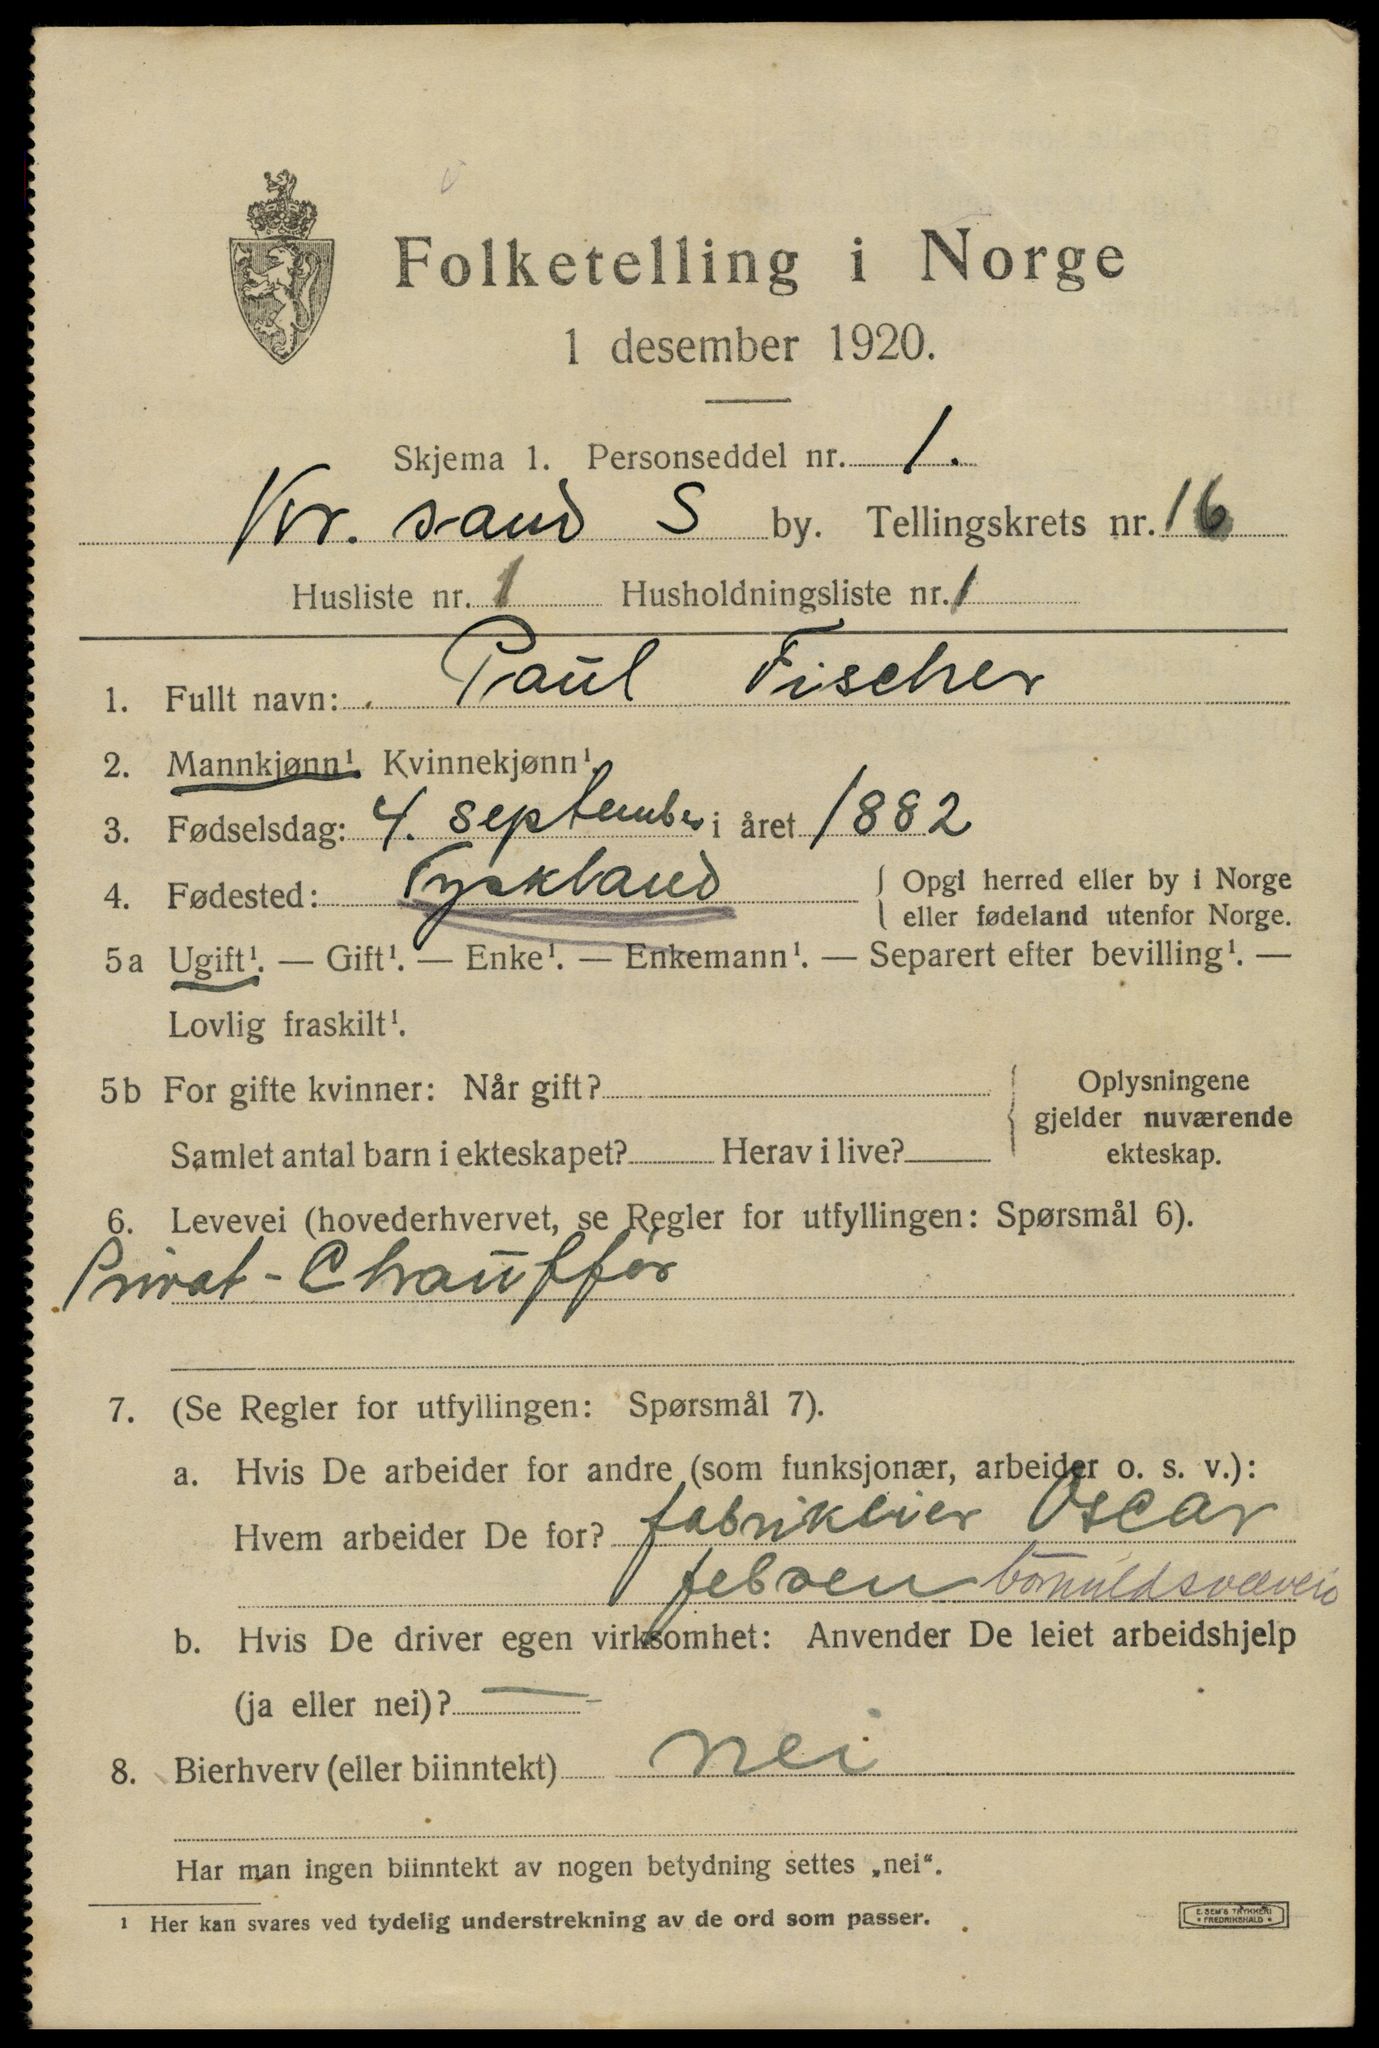 Folketelling i Norge
1 desember 1920.
Skjema 1. Personseddel nr. 1.
Kr. sand S by. Tellingskrets nr. 16
Husliste nr. 1 Husholdningsliste nr. 1
1. Fullt navn: Paul Fischer
2. Mannkjønn¹. Kvinnekjønn¹.
3. Fødselsdag: 4. september i året 1882
4. Fødested: Tyskland { Opgi herred eller by i Norge
eller fødeland utenfor Norge.
5a Ugift¹. — Gift¹. — Enke¹. — Enkemann¹. — Separert efter bevilling¹. —
Lovlig fraskilt¹.
5b For gifte kvinner: Når gift? Oplysningene
gjelder nuværende
Samlet antal barn i ekteskapet? Herav i live? ekteskap.
6. Levevei (hovederhvervet, se Regler for utfyllingen: Spørsmål 6).
Privat-Chauffør
7. (Se Regler for utfyllingen: Spørsmål 7).
a. Hvis De arbeider for andre (som funksjonær, arbeider o. s. v.):
Hvem arbeider De for? fabrikeier Oscar
Jebsen bomuldsvæveri
b. Hvis De driver egen virksomhet: Anvender De leiet arbeidshjelp
(ja eller nei)? —
8. Bierhverv (eller biinntekt) nei
Har man ingen biinntekt av nogen betydning settes „nei“.
¹ Her kan svares ved tydelig understrekning av de ord som passer.
E. SEM'S TRYKKERI
* FREDRIKSHALD *